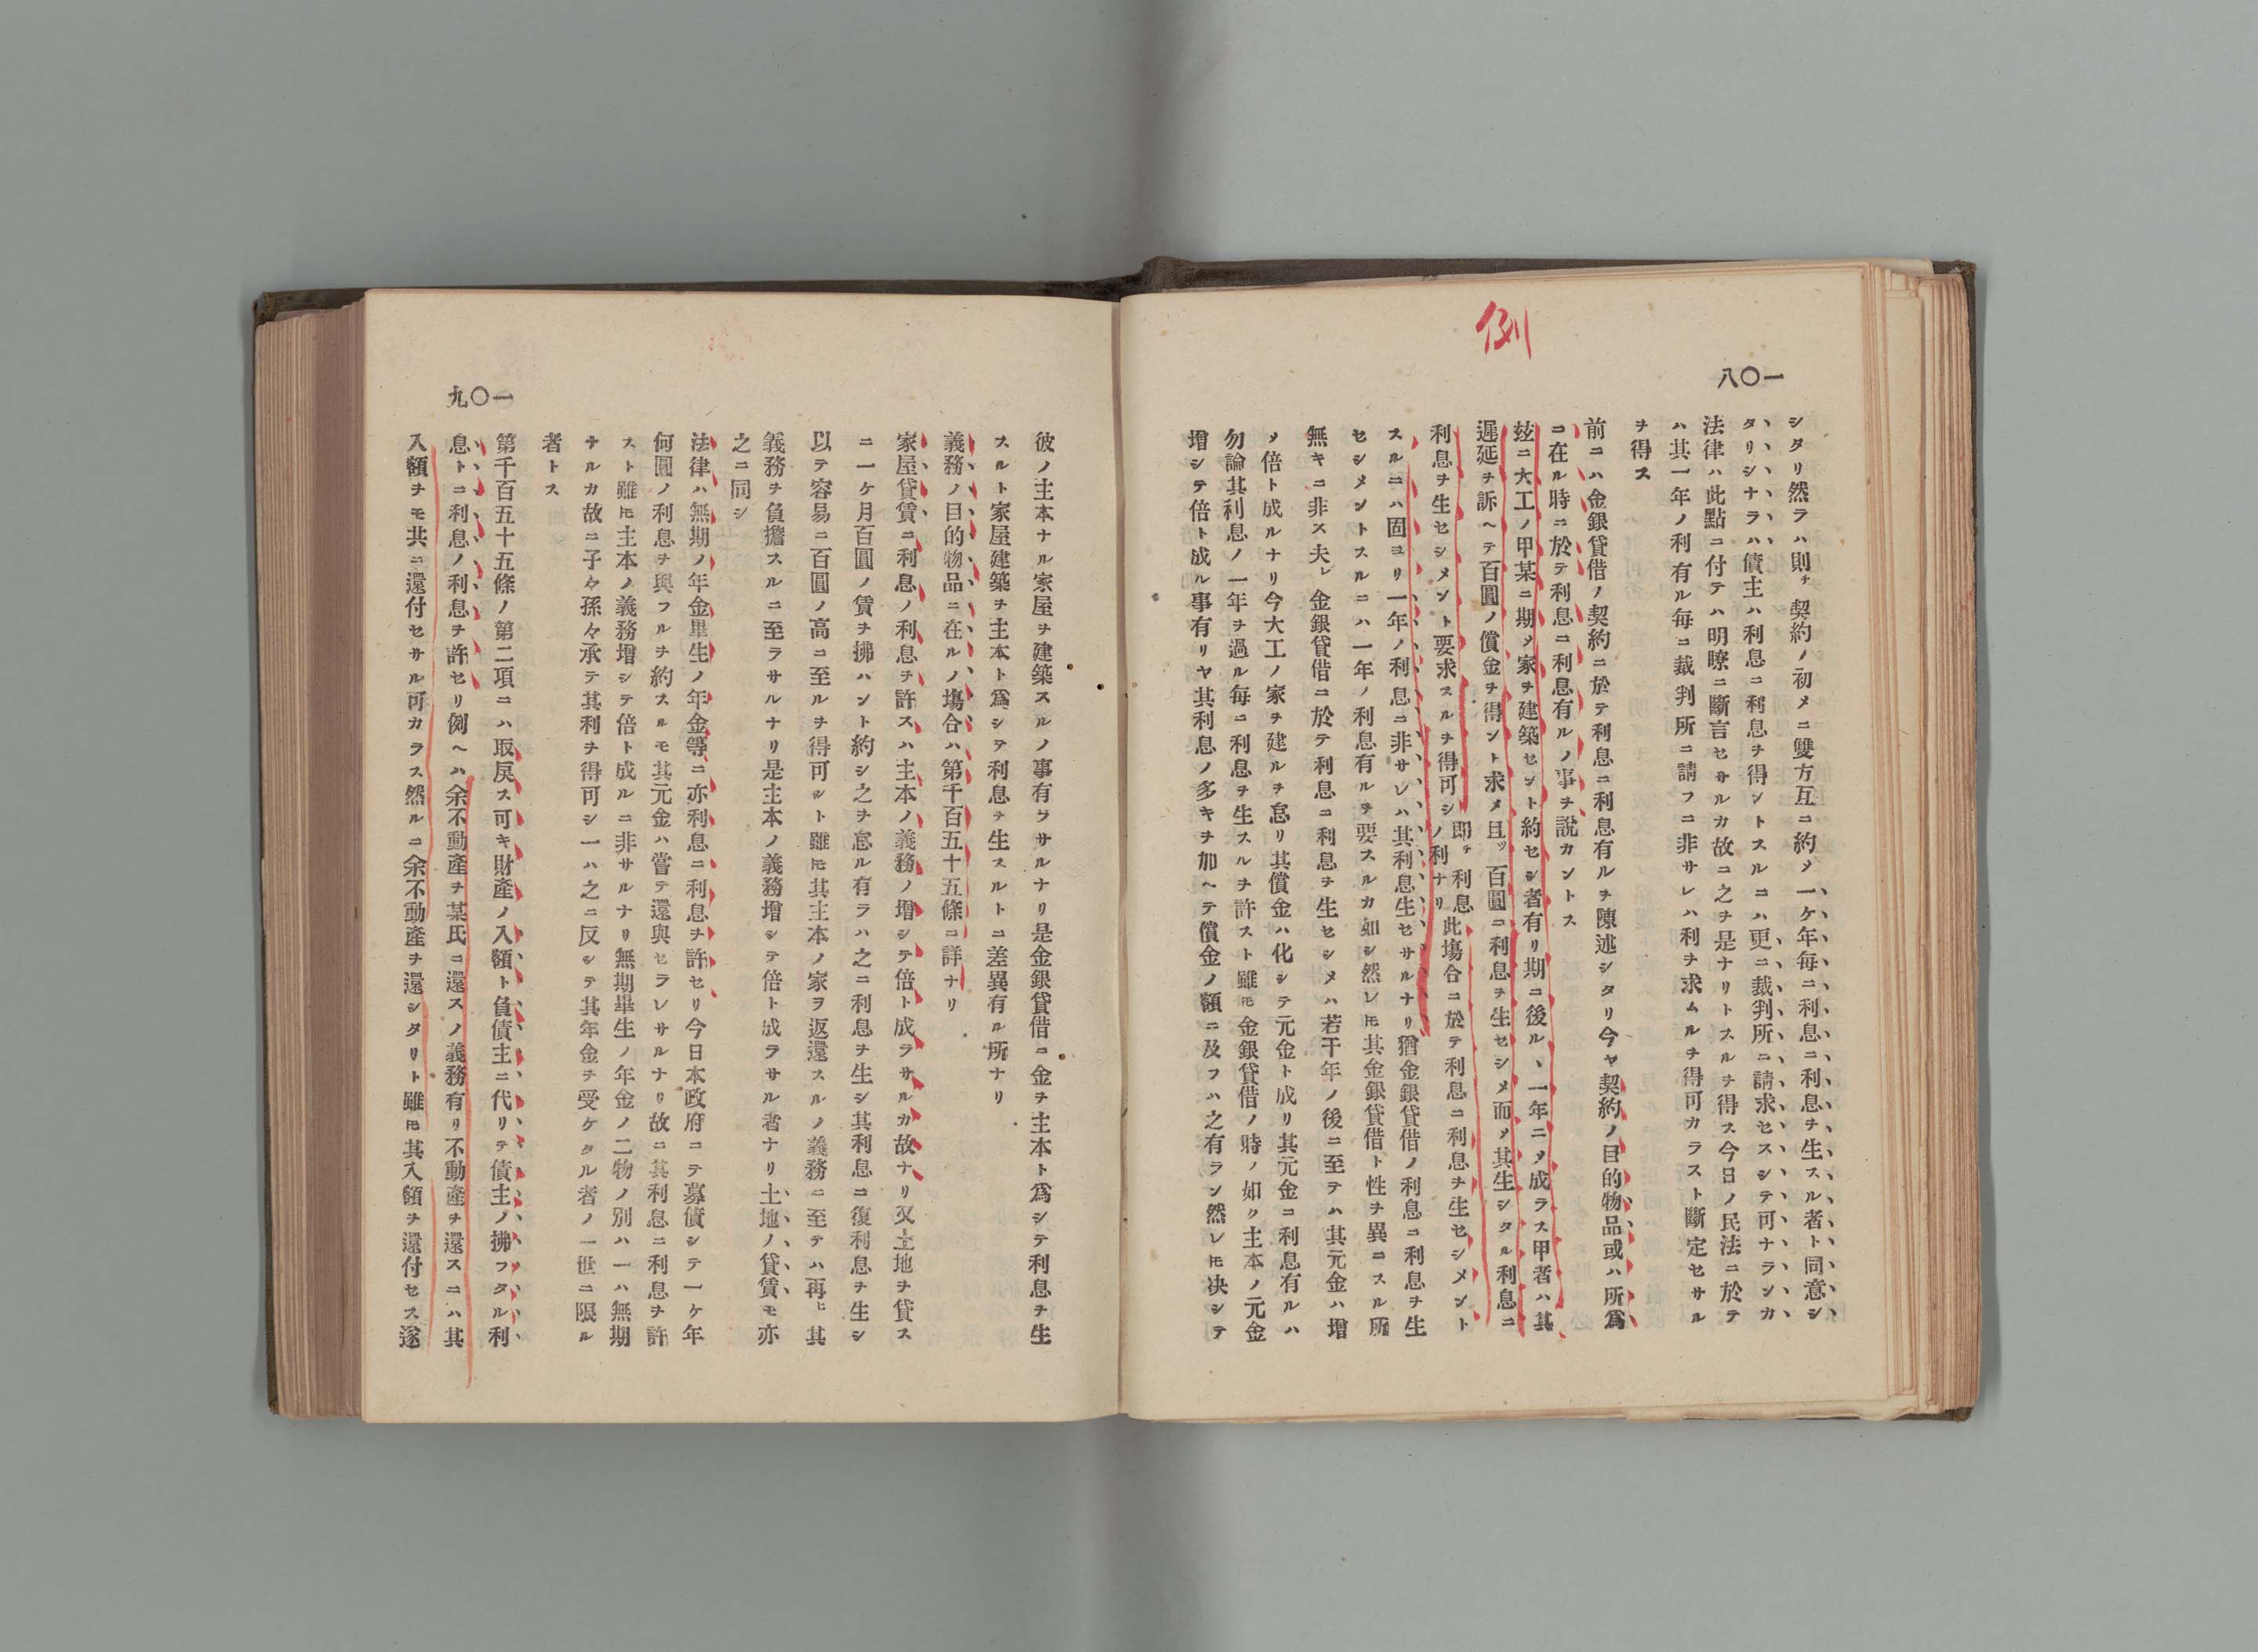 例
一〇八
シタリ然ラハ則チ契約ノ初メニ雙方互ニ約メ一ケ年毎ニ利息ニ利息ヲ生スル者ト同意シ
タリシナラハ債主ハ利息ニ利息ヲ得ントスルニハ更ニ裁判所ニ請求セスシテ可ナランカ
法律ハ此點ニ付テハ明瞭ニ斷言セサルカ故ニ之ヲ是ナリトスルヲ得ス今日ノ民法ニ於テ
ハ其一年ノ利有ル毎ニ裁判所ニ請フニ非サレハ利ヲ求ムルヲ得可カラスト斷定セサル
ヲ得ス
前ニハ金銀貸借ノ契約ニ於テ利息ニ利息有ルヲ陳述シタリ今ヤ契約ノ目的物品或ハ所爲
ニ在ル時ニ於テ利息ニ利息有ルノ事ヲ說カントス
玆ニ大工ノ甲某ニ期メ家ヲ建築セント約セシ者有リ期ニ後ルヽ一年ニメ成ラス甲者ハ其
遲延ヲ訴ヘテ百圓ノ償金ヲ得ント求メ且ツ百圓ニ利息ヲ生セシメ而メ其生シタル利息ニ
利息ヲ生セシメント要求スルヲ得可シ即チ利息ノ利ナリ此塲合ニ於テ利息ニ利息ヲ生セシメント
スルニハ固ヨリ一年ノ利息ニ非サレハ其利息生セサルナリ猶金銀貸借ノ利息ニ利息ヲ生
セシメントスルニハ一年ノ利息有ルヲ要スルカ如シ然レ𪜈其金銀貸借ト性ヲ異ニスル所
無キニ非ス夫レ金銀貸借ニ於テ利息ニ利息ヲ生セシメハ若干年ノ後ニ至テハ其元金ハ增
ノ倍ト成ルナリ今大工ノ家ヲ建ルヲ怠リ其償金ハ化シテ元金ト成リ其元金ニ利息有ルハ
勿論其利息ノ一年ヲ過ル毎ニ利息ヲ生スルヲ許スト雖𪜈金銀貸借ノ時ノ如ク主本ノ元金
增シテ倍ト成ル事有リヤ其利息ノ多キヲ加ヘテ償金ノ額ニ及フハ之有ラン然レ𪜈决シテ
一〇九
彼ノ主本ナル家屋ヲ建築スルノ事有ラサルナリ是金銀貸借ニ金ヲ主本ト爲シテ利息ヲ生
スルト家屋建築ヲ主本ト爲シテ利息ヲ生スルトニ差異有ル所ナリ
義務ノ目的物品ニ在ルノ塲合ハ第千百五十五條ニ詳ナリ
家屋貸賃ニ利息ノ利息ヲ許スハ主本ノ義務ノ增シテ倍ト成ラサルカ故ナリ又土地ヲ貸ス
ニ一ケ月百圓ノ賃ヲ拂ハント約シ之ヲ怠ル有ラハ之ニ利息ヲ生シ其利息ニ復利息ヲ生シ
以テ容易ニ百圓ノ高ニ至ルヲ得可シト雖𪜈其主本ノ家ヲ返還スルノ義務ニ至テハ再ヒ其
義務ヲ負擔スルニ至ラサルナリ是主本ノ義務增シテ倍ト成ラサル者ナリ土地ノ貸賃モ亦
之ニ同シ
法律ハ無期ノ年金畢生ノ年金等ニ亦利息ニ利息ヲ許セリ今日本政府ニテ募債シテ一ケ年
何圓ノ利息ヲ與フルヲ約スルモ其元金ハ嘗テ還與セラレサルナリ故ニ其利息ニ利息ヲ許
スト雖𪜈主本ノ義務增シテ倍ト成ルニ非サルナリ無期畢生ノ年金ノ二物ノ別ハ一ハ無期
ナルカ故ニ子々孫々承テ其利ヲ得可シ一ハ之ニ反シテ其年金ヲ受ケタル者ノ一世ニ限ル
者トス
第千百五十五條ノ第二項ニハ取戾ス可キ財產ノ入額ト負債主ニ代リテ債主ノ拂フタル利
息トニ利息ノ利息ヲ許セリ例ヘハ余不動產ヲ某氏ニ還スノ義務有リ不動產ヲ還スニハ其
入額ヲモ共ニ還付セサル可カラス然ルニ余不動產ヲ還シタリト雖𪜈其入額ヲ還付セス遂